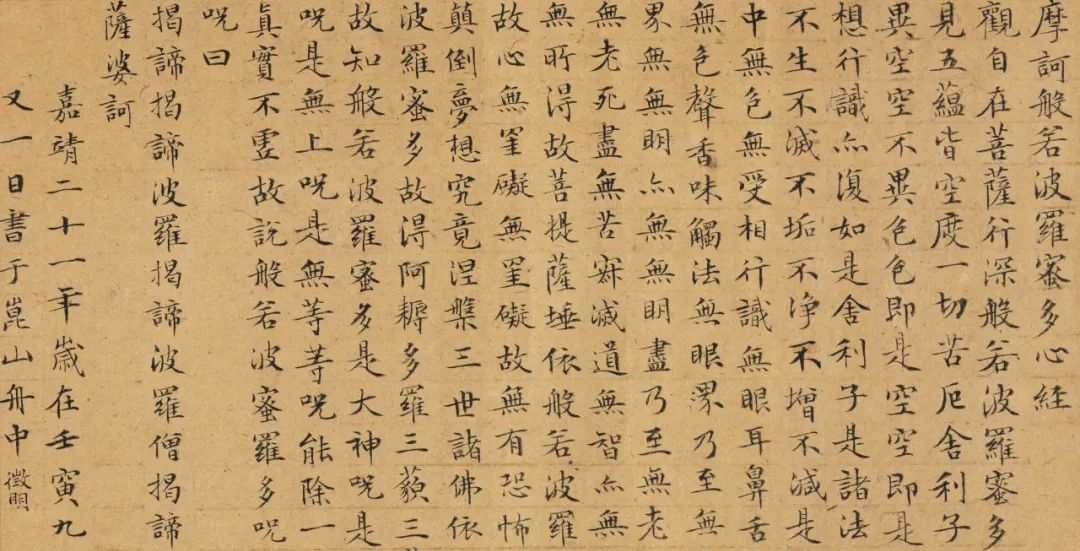 摩訶般若波羅蜜多心経
觀自在菩薩行深般若波羅蜜多
見五蘊皆空度一切苦厄舍利子
異空空不異色色即是空空即是
想行識亦復如是舍利子是諸法
不生不滅不垢不浄不增不減是
中無色無受相行識無眼耳鼻舌
無色聲香味觸法無眼界乃至無
界無無明亦無無明盡乃至無老
無老死盡無苦寂滅道無智亦無
無所得故菩提薩埵依般若波羅
故心無罣礙無罣礙故無有恐怖
顛倒夢想究竟涅槃三世諸佛依
波羅蜜多故得阿耨多羅三藐三
故知般若波羅蜜多是大神呪是
呪是無上呪是無等等呪能除一
真實不虛故說般若波蜜羅多呪
呪曰
揭諦揭諦波羅揭諦波羅僧揭諦
薩婆訶
嘉靖二十一年歲在壬寅九
又一日書于崑山舟中 徵明